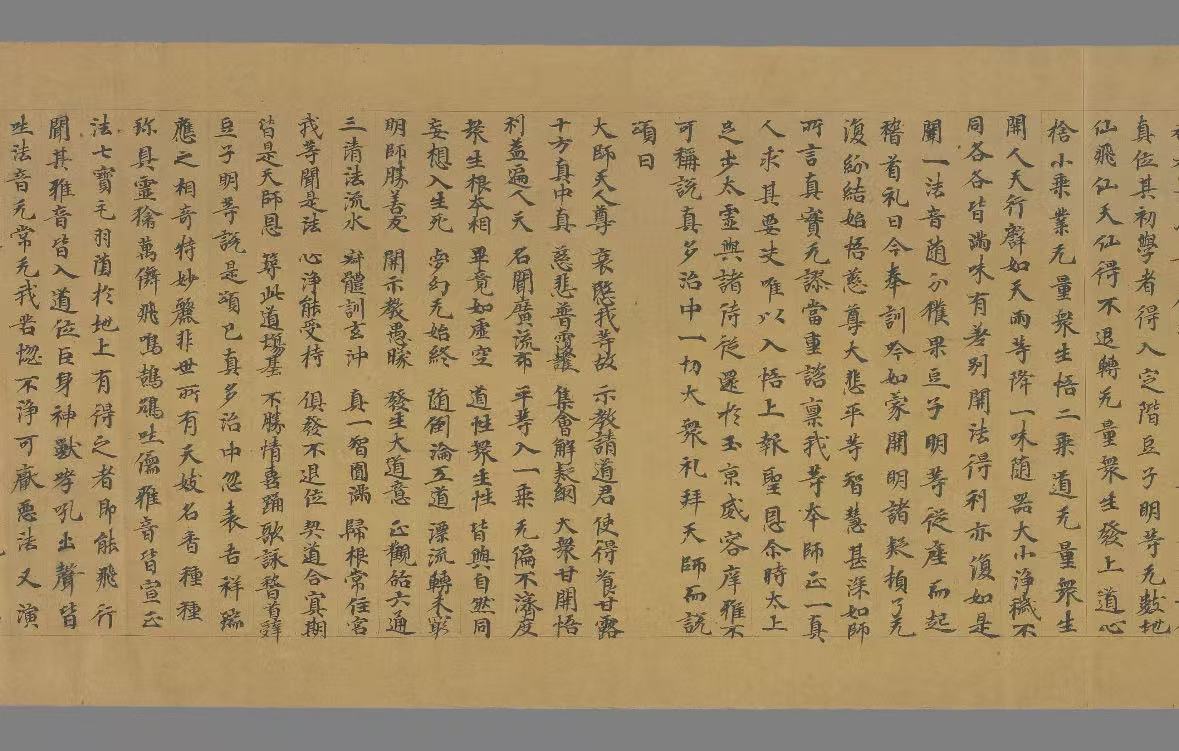 真位其初學者得入定階豆子明等无數地
仙飛仙天仙得不退轉无量衆生發上道心
捨小乘業无量衆生悟二乘道无量衆生
開人天行譬如天雨等降一味随器大小淨穢不
同各各皆滿味有差別開法得利亦復如是
闡一法音随分獲果豆子明等從座而起
稽首礼曰今奉訓吟如蒙開明諸疑頓了无
復紛結始悟慈尊大悲平等智慧甚深如師
所言真實无謬當重諮禀我等本師正一真
人求其要丈唯以入悟上報聖恩尒時太上
足步太虚與諸侍從還於玉京威容庠雅不
可稱説真多治中一切大衆礼拜天師而説
頌曰
大師天人尊 哀愍我等故 示教請道君 使得飡甘露
十方真中真 慈悲普霑 集會解疑網 大衆甘開悟
利益遍人天 名聞廣流布 平等入一乘 无偏不濟度
衆生根本相 畢竟如虚空 道性衆生性 皆與自然同
妄想入生死 夢幻无始終 随倒淪五道 漂流轉未窮
明師勝善友 開示教愚矇 發生大道意 正觀啟六通
三清法流水 辯體訓玄沖 真一智圓滿 歸根常住宮
我等聞是法 心淨能受持 俱發不退位 契道合真期
皆是天師恩 等此道場基 不勝情喜踊 歌詠稽首辞
豆子明等説是頌已真多治中忽表吉祥瑞
應之相奇特妙麗非世所有天妓名香種種
珍具靈獠萬儛飛鳴鵠鶴吐儒雅音皆宣正
法七寶毛羽菌於地上有得之者即能飛行
聞其雅音皆入道位巨身神獸哮吼出聲皆
吐法音无常无我苦惚不淨可厭惡法又演